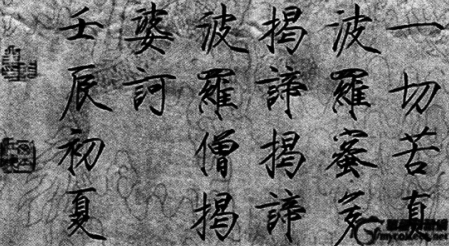 一切苦真
波羅蜜多
揭諦揭諦
波羅僧揭
婆訶
壬辰初夏